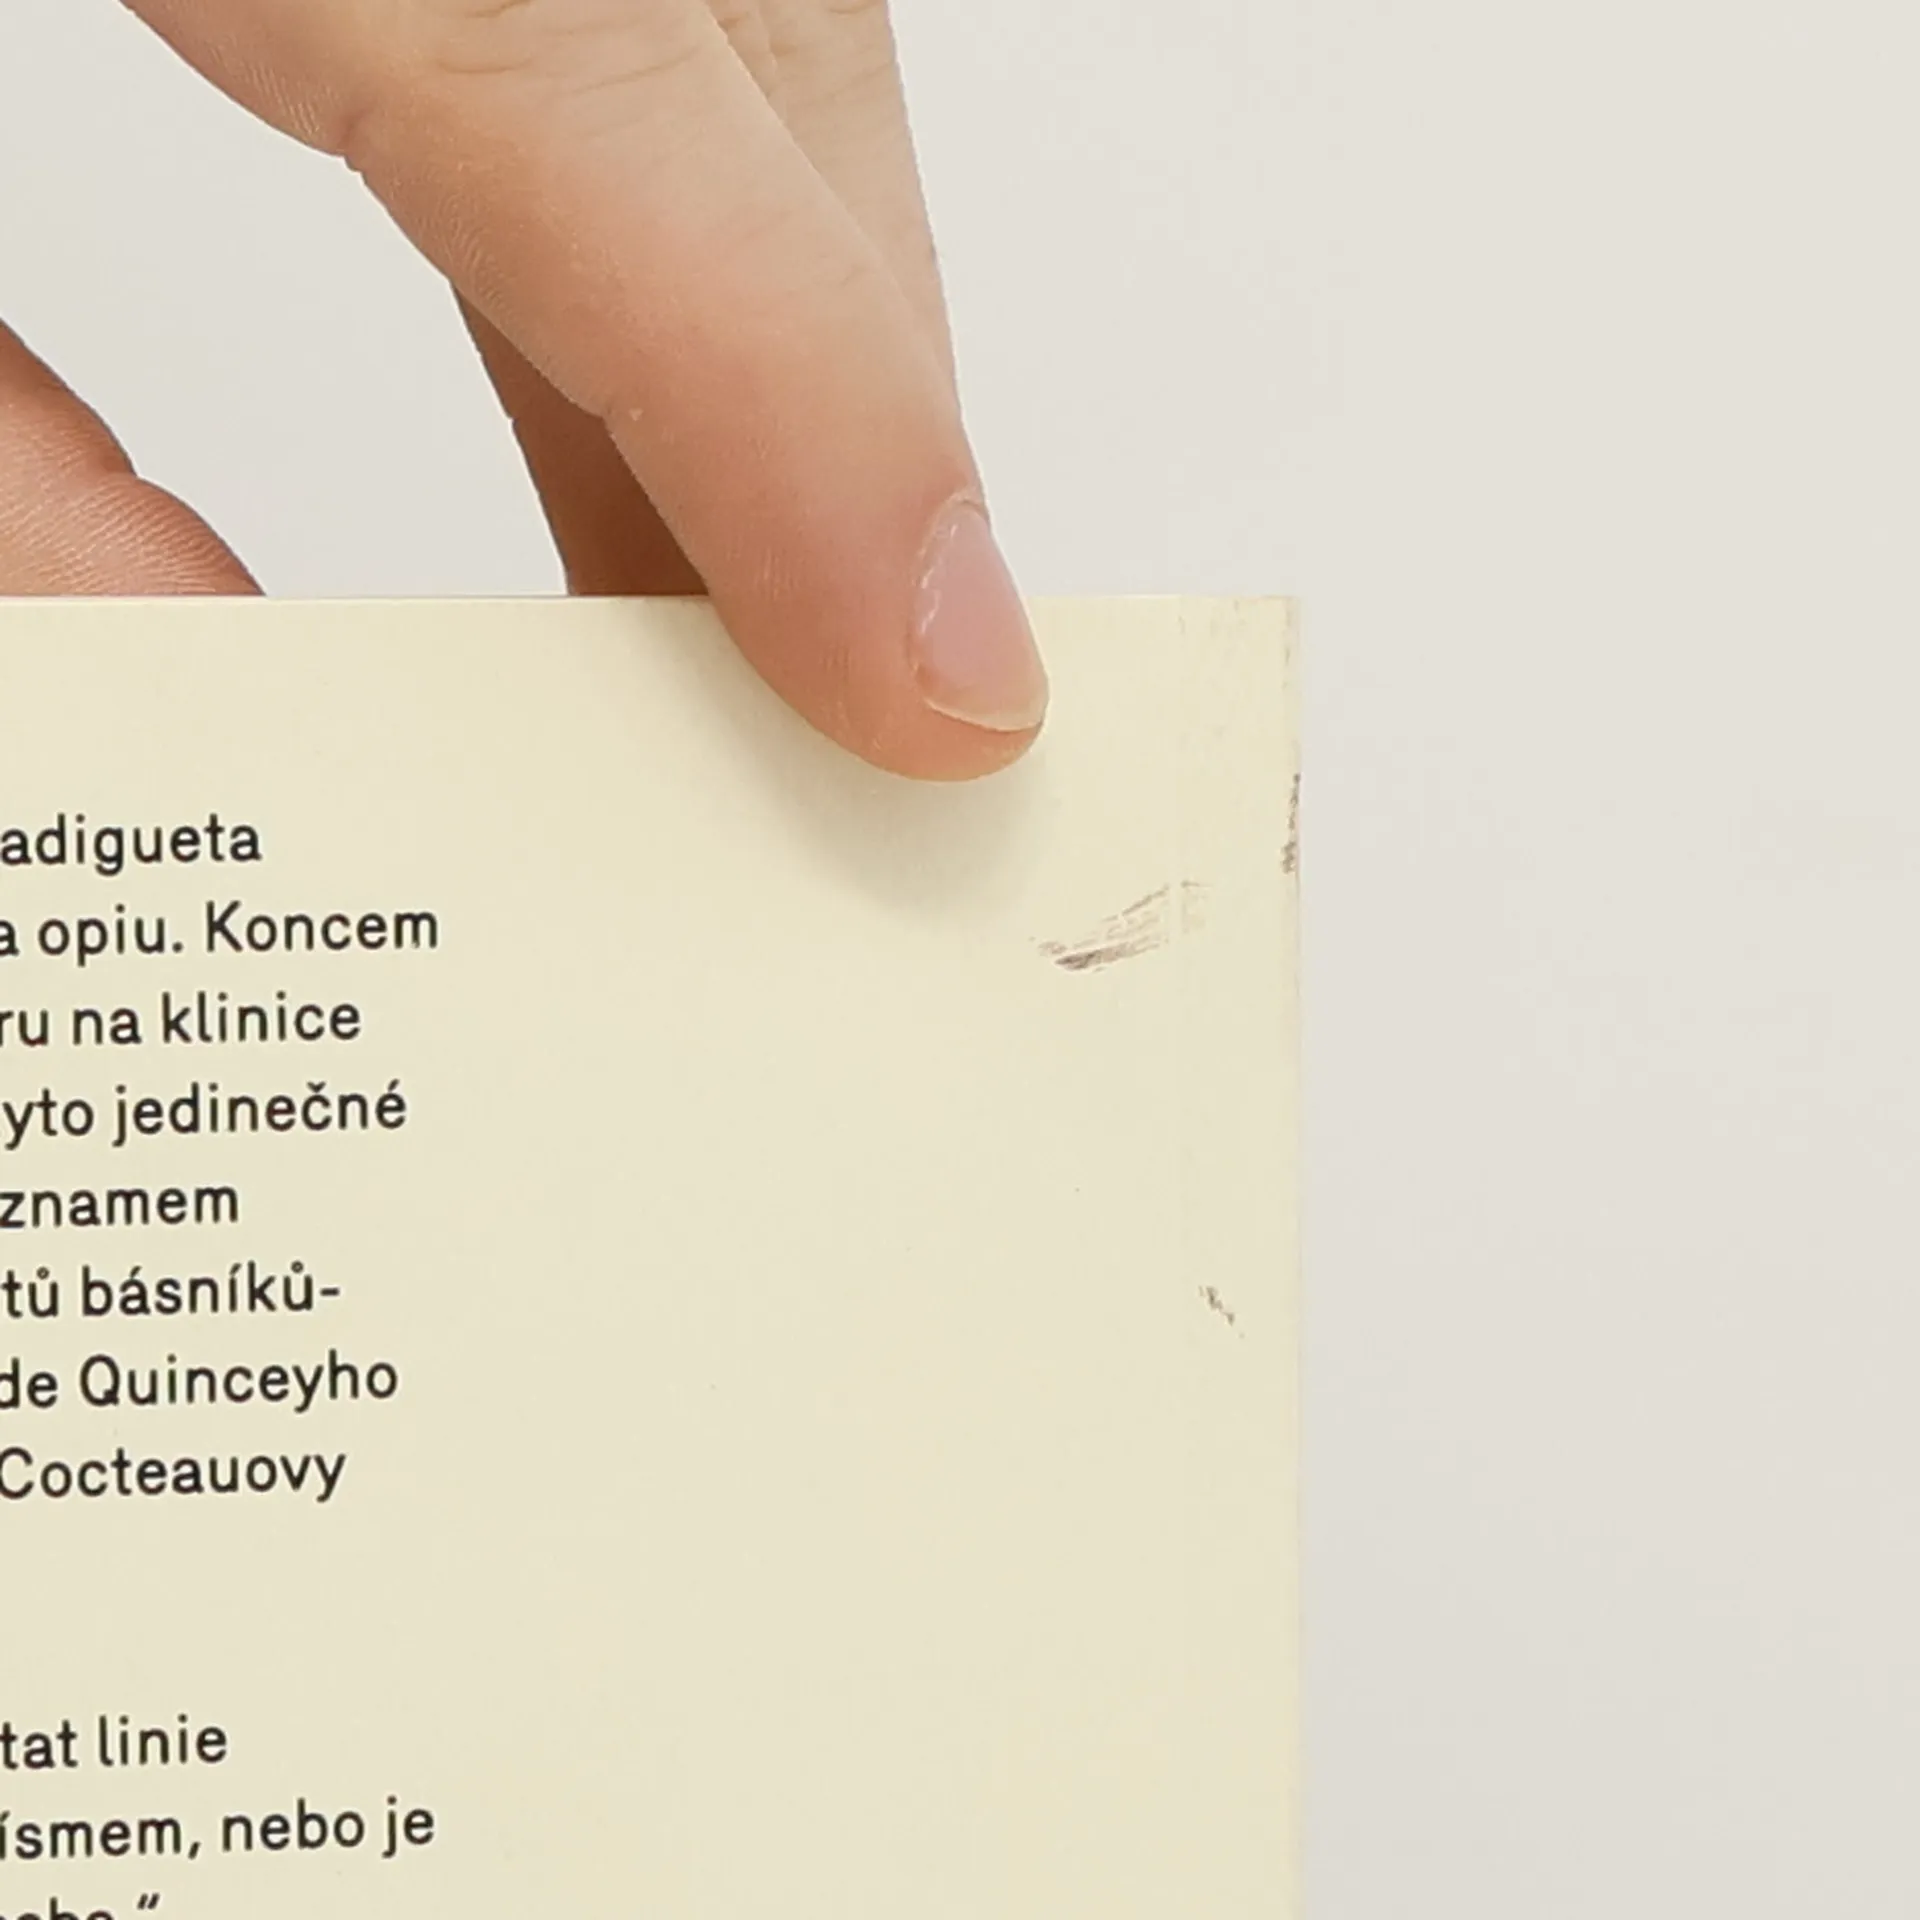 adigueta
a opiu. Koncem
ru na klinice
yto jedinečné
znamem
tů básníků-
de Quinceyho
Cocteauovy
tat linie
ísmem, nebo je
“